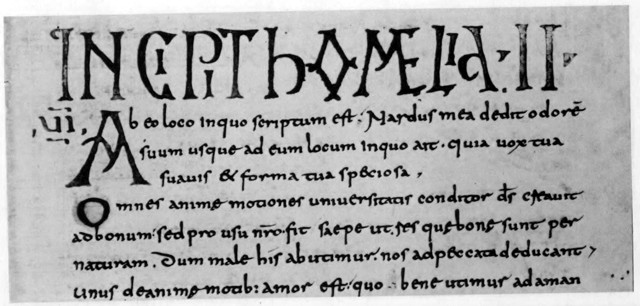 INCIPIT hOMELIA · II ·
,VI, Ab eo loco in quo scriptum est: Nardus mea dedit odorē
suum usque ad eum locum in quo ait · quia vox tua
suavis & forma tua speciosa,
Omnes animę motiones universitatis conditor d̄s creavit
ad bonum · sed pro usu n̄ro · fit saepe ut, res quę bonę sunt per
naturam · Dum male his abutimur · nos ad peccata deducant,
Unus de animę motib: amor est · quo bene utimur ad aman